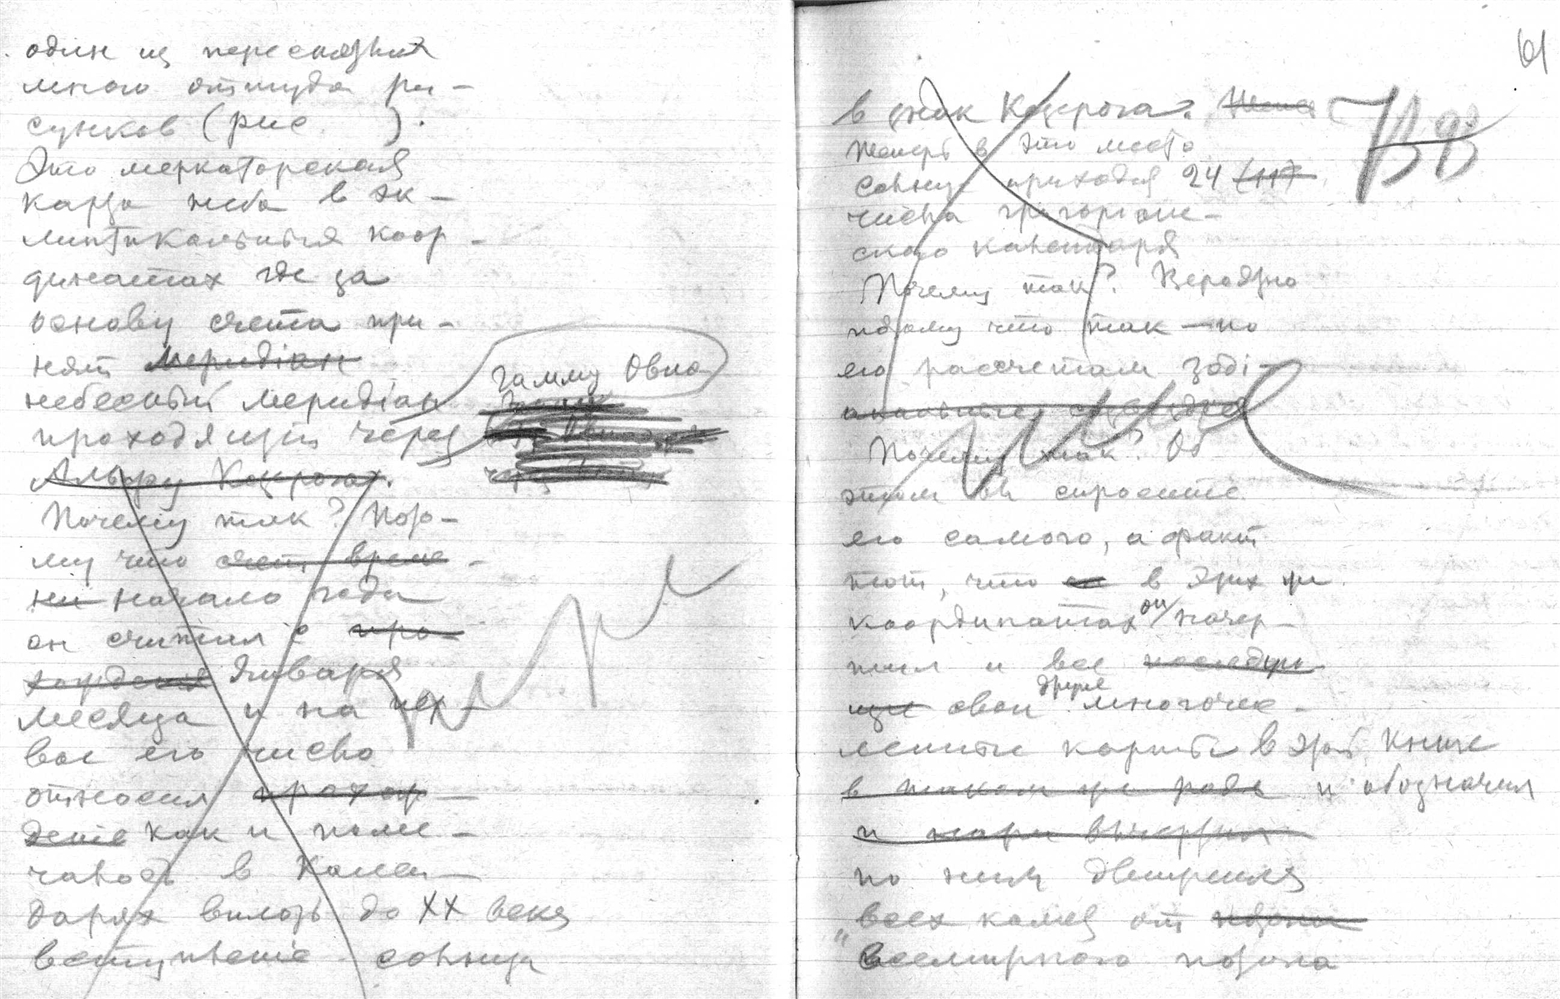 один из пересказных
много оттуда ри-
сунков (рис. ).
Это меркаторская
карта неба в эк-
липтикальных коор-
динатах где за
основу счета при-
нят меридіан
небесный меридіан
гамму Овна
проходящій через
Альфу Козерога.
Почему так? Пото-
му что счет време-
ни начало года
он считал с про-
хождения Января
месяца и на пер-
вое его число
относил прохож-
дение как и поме-
чалось в Кален-
дарях вплоть до XX века
вступленіе солнца
61
в знак Козерога.
теперь в это место
солнце приходит 24 (11)
числа григоріан-
ского календаря
Почему так? Вероятно
потому что так по
его рассчетам зоді-
Почему так? Об
этом вы спросите
его самого, а факт
тот, что он в этих же
координатах он начер-
тил и все последую-
щие свои другие многочис-
ленные карты в этой книге
в таком же роде и обозначил
по ним
всех комет от
"всемирного потопа